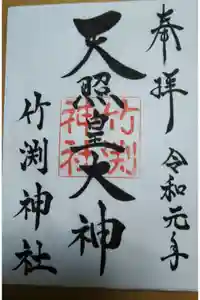 奉拝
令和元年
天照皇大神
竹渕神社
竹渕神社